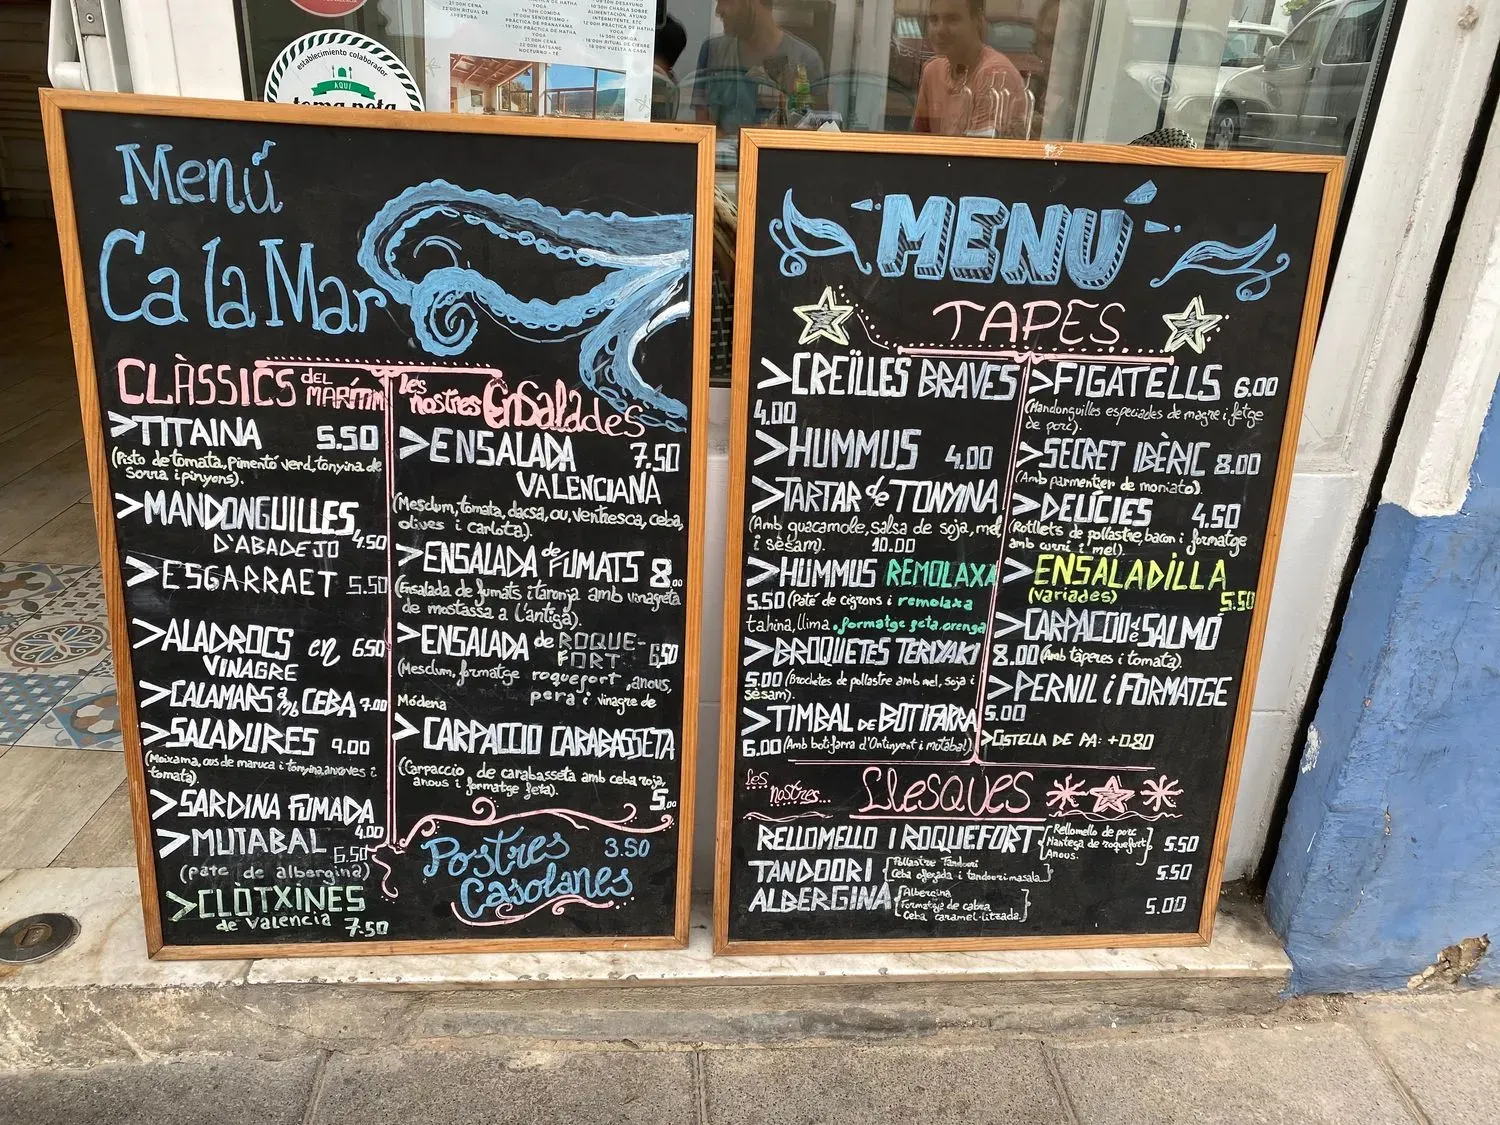 21:00H CENA
22:00H RITUAL DE
APERTURA
14'30H COMIDA
17'00H SENDERISMO +
PRÁCTICA DE PRANAYAMA
19'30H PRÁCTICA DE HATHA
YOGA
21:00H CENA
22:00H SATSANG
NOCTURNO - TÉ
10'30H CHARLA SOBRE
ALIMENTACIÓN, AYUNO
INTERMITENTE, ETC
12:00H PRÁCTICA DE HATHA
YOGA
14'30H COMIDA
18:00H VUELTA A CASA
establecimiento colaborador
AQUÍ
Menú
Ca la Mar
CLÀSSICS DEL MARÍTIM
>TITAINA 5.50
(Pisto de tomata, pimentó verd, tonyina de
Sorra i pinyons).
>MANDONGUILLES
D'ABADEJO 4.50
>ESGARRAET 5.50
>ALADROCS en 6.50
VINAGRE
>CALAMARS amb CEBA 7.00
>SALADURES 9.00
(Moixama, ous de maruca i tonyina, anxoves i
tomata).
>SARDINA FUMADA
4.00
>MUTABAL 6.50
(paté de albergina)
>CLOTXINES
de Valencia 7.50
les nostres EnSalades
>ENSALADA 7.50
VALENCIANA
(Mesclum, tomata, dacsa, ou, ventresca, ceba,
olives i carlota).
>ENSALADA de FUMATS 8.00
(Ensalada de fumats i taronja amb vinagreta
de mostassa a l'antiga).
>ENSALADA de ROQUE-
FORT 6,50
(Mesclum, formatge roquefort, anous,
pera i vinagre de
Módena
>CARPACCIO CARABASSETA
(Carpaccio de carabasseta amb ceba roja,
anous i formatge feta).
5.00
Postres 3.50
Casolanes
MENÚ
TAPES
>CREÏLLES BRAVES
4.00
>HUMMUS 4.00
>TARTAR de TONYINA
(Amb guacamole, salsa de soja, mel
i sèsam). 10.00
>HUMMUS REMOLAXA
5.50 (Paté de cigrons i remolaxa
tahina, llima, formatge feta, orenga
>BROQUETES TERIYAKI
5.00 (Brochetes de pollastre amb mel, soja i
sèsam).
>TIMBAL DE BOTIFARRA
6.00 (Amb botifarra d'Ontinyent i mutabal)
>FIGATELLS 6.00
(Mandonguilles especiades de magre i fetge
de porc).
>SECRET IBÈRIC 8.00
(Amb parmentier de moniato).
>DELÍCIES 4.50
(Rotllets de pollastre, bacon i formatge
amb curri i mel).
>ENSALADILLA
(variades) 5.50
>CARPACCIO de SALMÓ
8.00 (Amb tàperes i tomata).
>PERNIL i FORMATGE
5.00
>CISTELLA DE PA: +0.80
les nostres... LLESQUES
RELLOMELLO I ROQUEFORT {Rellomello de porc, Mantega de roquefort, Anous.} 5.50
TANDOORI {Pollastre Tandoori Ceba ofegada i tandoori masala..} 5.50
ALBERGINA {Albergina Formatge de cabra Ceba caramel·litzada.} 5.00